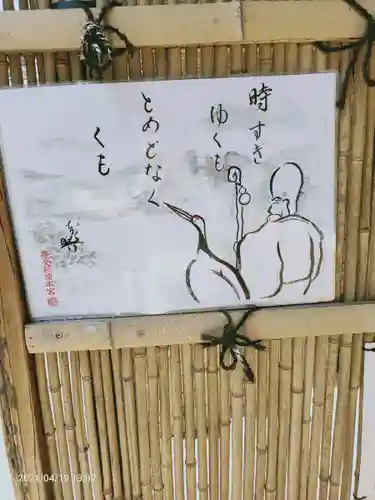 時すぎ
ゆくも
とめどなく
くも
2021/04/19 13:07